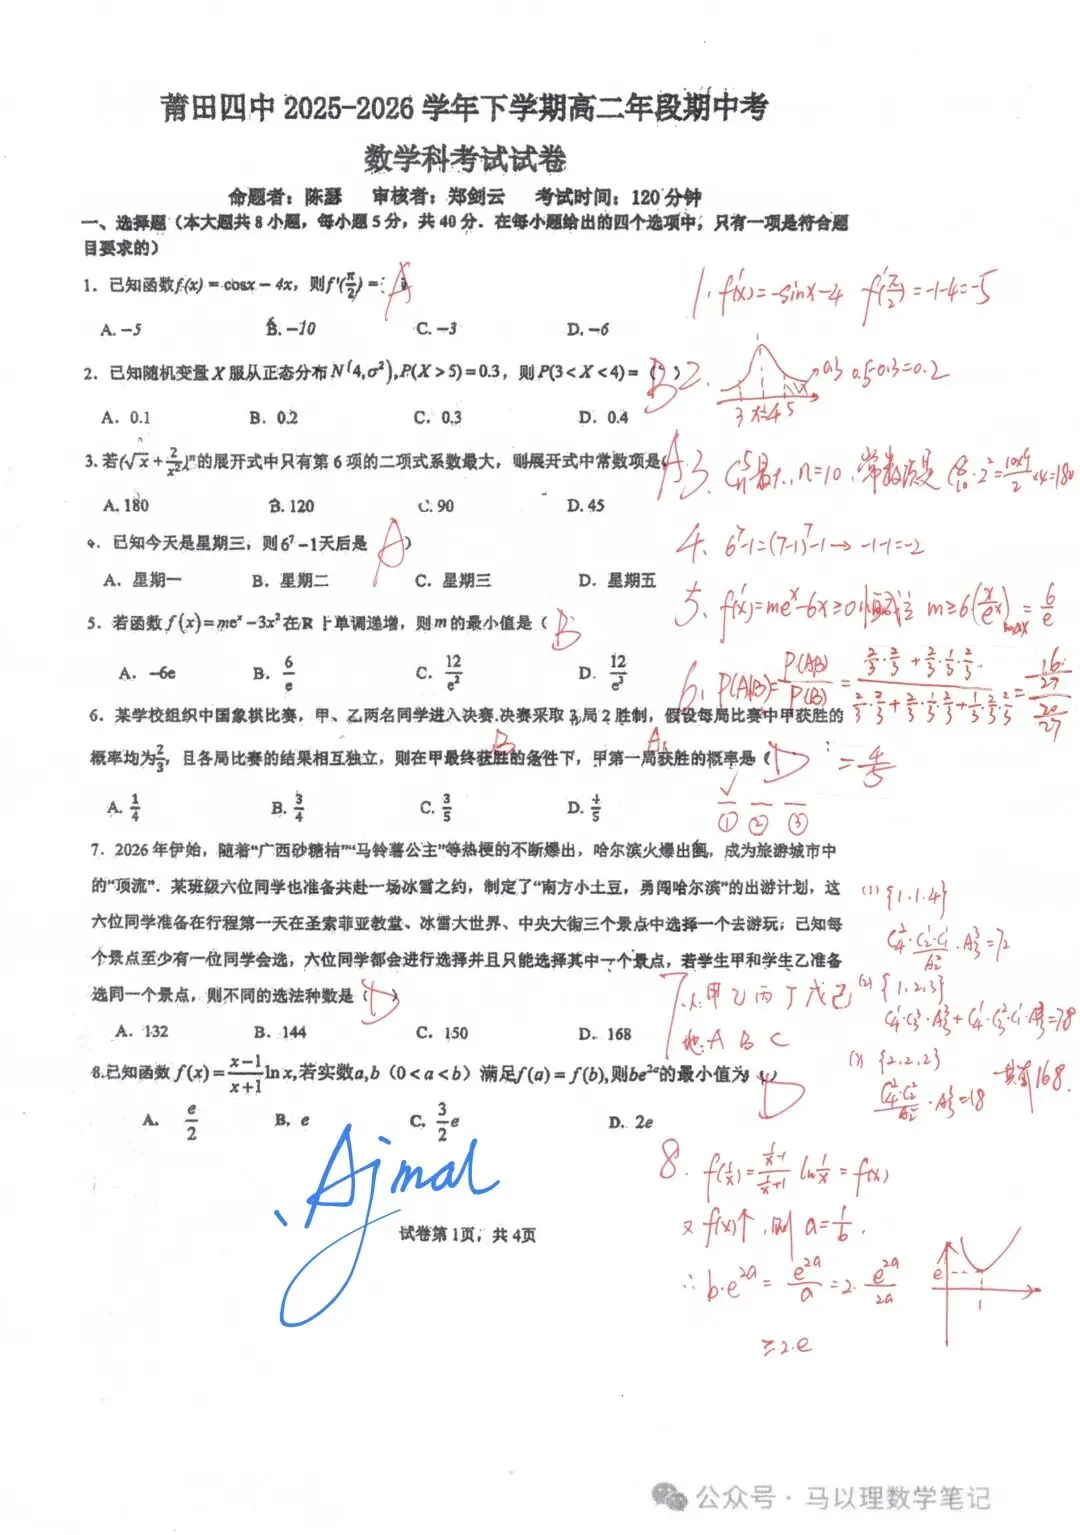 莆田四中 2025-2026 学年下学期高二年段期中考
数学科考试试卷
命题者：陈瑟 审核者：郑剑云 考试时间：120 分钟
一、选择题（本大题共 8 小题，每小题 5 分，共 40 分．在每小题给出的四个选项中，只有一项是符合题
目要求的）
1．已知函数f(x) = cosx − 4x，则f′(π/2) = A
A. −5 B. −10 C. −3 D. −6
1. f′(x)=-sinx-4 f′(π/2)=-1-4=-5
2．已知随机变量 X 服从正态分布 N(4,σ²), P(X > 5) = 0.3，则 P(3 < X < 4) = ( ) B
A．0.1 B．0.2 C．0.3 D．0.4
2. 3 x=4 5 0.3 0.5-0.3=0.2
3. 若(√x + 2/x²)ⁿ的展开式中只有第 6 项的二项式系数最大，则展开式中常数项是( A
A. 180 B. 120 C. 90 D. 45
3. Cₙ⁵最大, n=10, 常数项是 C₁₀⁸·2²=10×9/2×4=180
4．已知今天是星期三，则6⁷ − 1天后是 A )
A．星期一 B．星期二 C．星期三 D．星期五
4. 6⁷-1=(7-1)⁷-1→ -1-1=-2
5．若函数 f(x)=meˣ−3x² 在 R 上单调递增，则 m 的最小值是 ( B
A．−6e B．6/e C．12/e² D．12/e³
5. f′(x)=meˣ-6x≥0恒成立 m≥6(x/eˣ)max=6/e
6．某学校组织中国象棋比赛，甲、乙两名同学进入决赛.决赛采取 3 局 2 胜制，假设每局比赛中甲获胜的
概率均为2/3，且各局比赛的结果相互独立，则在甲最终获胜的条件下，甲第一局获胜的概率是 ( D
B A
A. 1/4 B. 3/4 C. 3/5 D. 4/5
6. P(A|B)=P(AB)/P(B)=(2/3·2/3+2/3·1/3·2/3)/(2/3·2/3+2/3·1/3·2/3+1/3·2/3·2/3)=(16/27)/(20/27)
=4/5
① ② ③
7．2026 年伊始，随着“广西砂糖桔”“马铃薯公主”等热梗的不断爆出，哈尔滨火爆出圈，成为旅游城市中
的“顶流”．某班级六位同学也准备共赴一场冰雪之约，制定了“南方小土豆，勇闯哈尔滨”的出游计划，这
六位同学准备在行程第一天在圣索菲亚教堂、冰雪大世界、中央大街三个景点中选择一个去游玩；已知每
个景点至少有一位同学会选，六位同学都会进行选择并且只能选择其中一个景点，若学生甲和学生乙准备
选同一个景点，则不同的选法种数是 ( D )
A．132 B．144 C．150 D．168
7. 人:甲乙丙丁戊己
地:A B C
(1) {1.1.4}
C₄²·C₂¹·C₁¹/A₂²·A₃³=72
(2) {1.2.3}
C₄¹·C₃³·A₃³+C₄¹·C₃²·C₁¹·A₃³=78
(3) {2.2.2}
C₄²·C₂²/A₂²·A₃³=18 168.
8.已知函数 f(x) = (x−1)/(x+1) ln x, 若实数a,b（0 < a < b）满足f(a) = f(b),则be²ᵃ的最小值为 ( ) D
A. e/2 B. e C. 3/2 e D. 2e
8. f(1/x)=(1/x-1)/(1/x+1) ln1/x=f(x)
又 f(x)↑, 则 a=1/b.
∴ b·e²ᵃ=e²ᵃ/a=2·e²ᵃ/2a
≥2·e
e 1
Ajmal
试卷第 1页，共 4页
公众号 · 马以理数学笔记